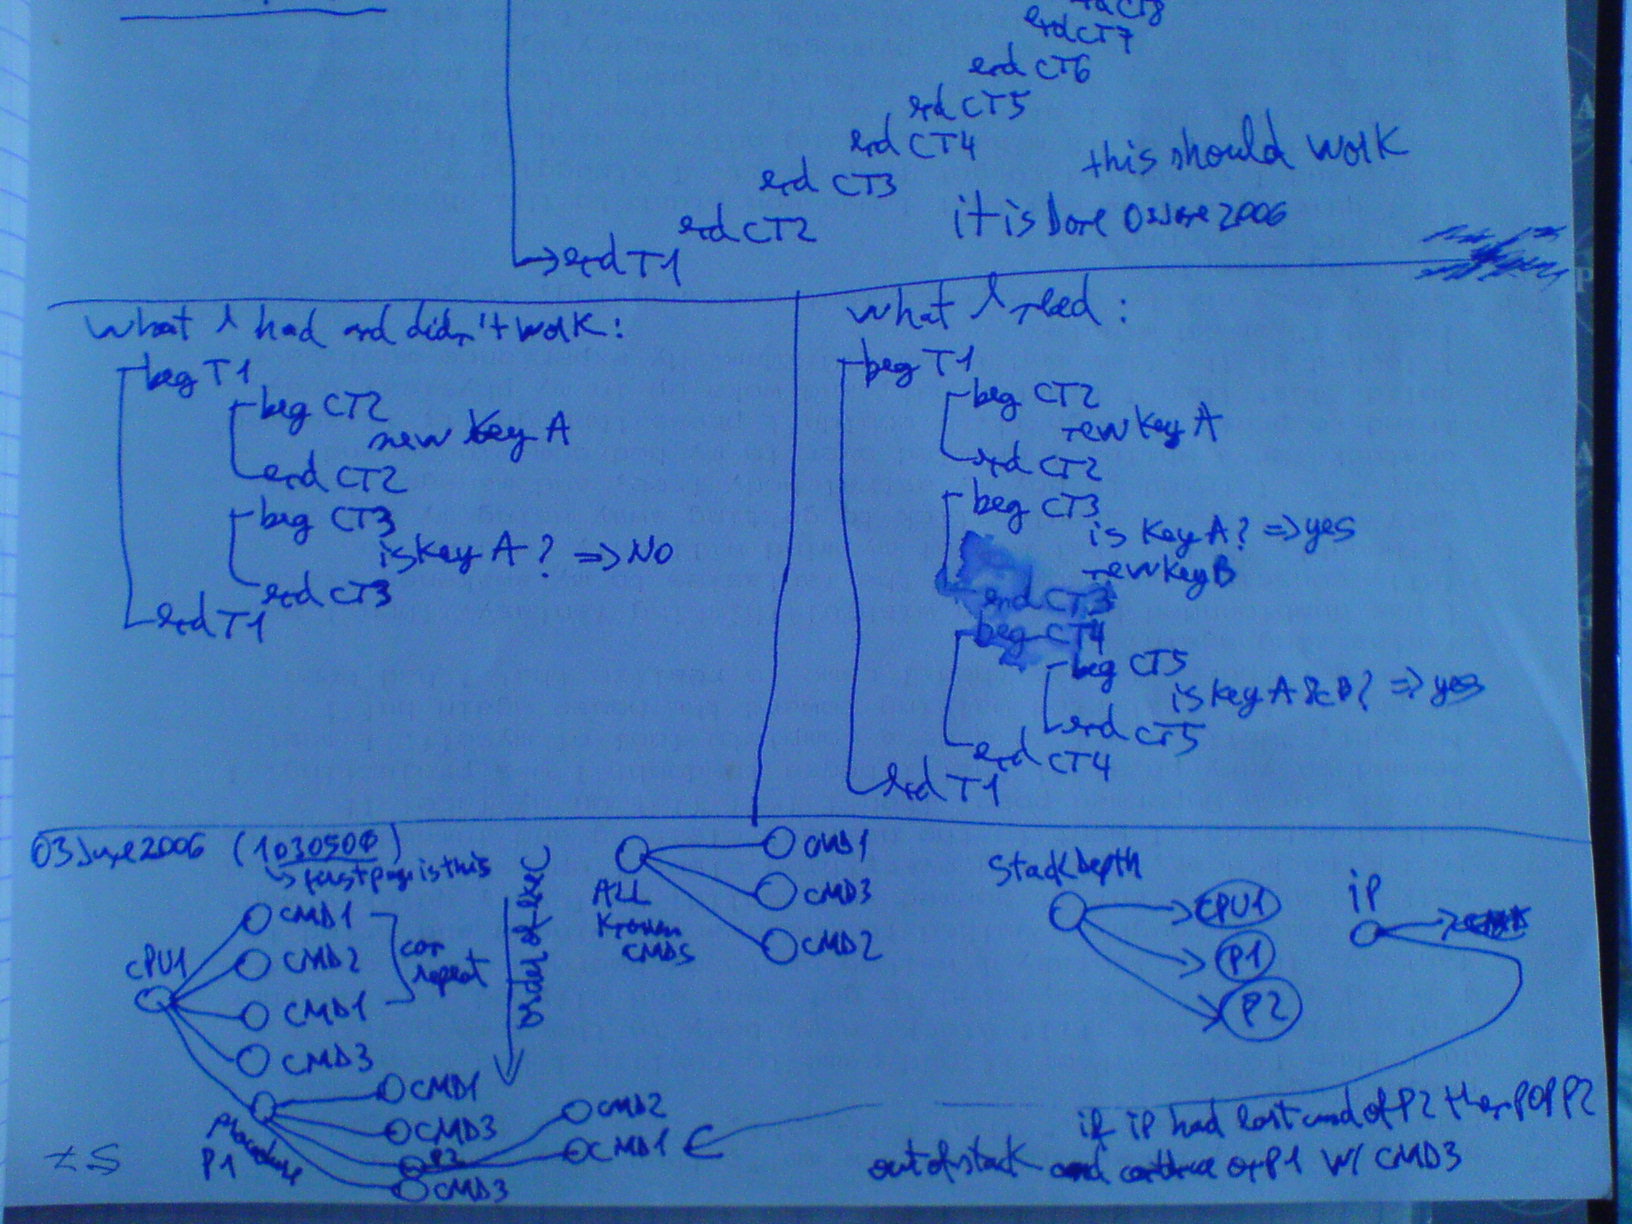 end CT8
end CT7
end CT6
end CT5
end CT4
end CT3
end CT2
end T1
this should work
it is Done 03June2006
What I had and didn't work:
beg T1
beg CT2
new key A
end CT2
beg CT3
is key A? => No
end CT3
end T1
What I need:
beg T1
beg CT2
new key A
end CT2
beg CT3
is key A? => yes
new key B
end CT3
beg CT4
beg CT5
is key A & B? => yes
end CT5
end CT4
end T1
03June2006 (1030500)
first page is this
CPU1
CMD1
CMD2
CMD1
CMD3
can
repeat
order of exec
Placeholder
P1
CMD1
CMD3
P2
CMD3
CMD2
CMD1
ALL
known
CMDs
CMD1
CMD3
CMD2
StackDepth
CPU1
P1
P2
iP
if iP had last cmd of P2 then POP P2
out of stack and continue on P1 w/ CMD3